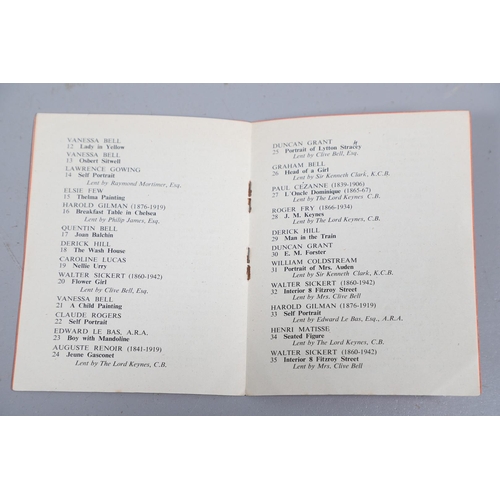 VANESSA BELL
12 Lady in Yellow
VANESSA BELL
13 Osbert Sitwell
LAWRENCE GOWING
14 Self Portrait
Lent by Raymond Mortimer, Esq.
ELSIE FEW
15 Thelma Painting
HAROLD GILMAN (1876-1919)
16 Breakfast Table in Chelsea
Lent by Philip James, Esq.
QUENTIN BELL
17 Joan Balchin
DERICK HILL
18 The Wash House
CAROLINE LUCAS
19 Nellie Urry
WALTER SICKERT (1860-1942)
20 Flower Girl
Lent by Clive Bell, Esq.
VANESSA BELL
21 A Child Painting
CLAUDE ROGERS
22 Self Portrait
EDWARD LE BAS, A.R.A.
23 Boy with Mandoline
AUGUSTE RENOIR (1841-1919)
24 Jeune Gasconet
Lent by The Lord Keynes, C.B.
DUNCAN GRANT
25 Portrait of Lytton Stracey
Lent by Clive Bell, Esq.
GRAHAM BELL
26 Head of a Girl
Lent by Sir Kenneth Clark, K.C.B.
PAUL CEZANNE (1839-1906)
27 L'Oncle Dominique (1865-67)
Lent by The Lord Keynes C.B.
ROGER FRY (1866-1934)
28 J. M. Keynes
Lent by The Lord Keynes, C.B.
DERICK HILL
29 Man in the Train
DUNCAN GRANT
30 E. M. Forster
WILLIAM COLDSTREAM
31 Portrait of Mrs. Auden
Lent by Sir Kenneth Clark, K.C.B.
WALTER SICKERT (1860-1942)
32 Interior 8 Fitzroy Street
Lent by Mrs. Clive Bell
HAROLD GILMAN (1876-1919)
33 Self Portrait
Lent by Edward Le Bas, Esq., A.R.A.
HENRI MATISSE
34 Seated Figure
Lent by The Lord Keynes, C.B.
WALTER SICKERT (1860-1942)
35 Interior 8 Fitzroy Street
Lent by Mrs. Clive Bell